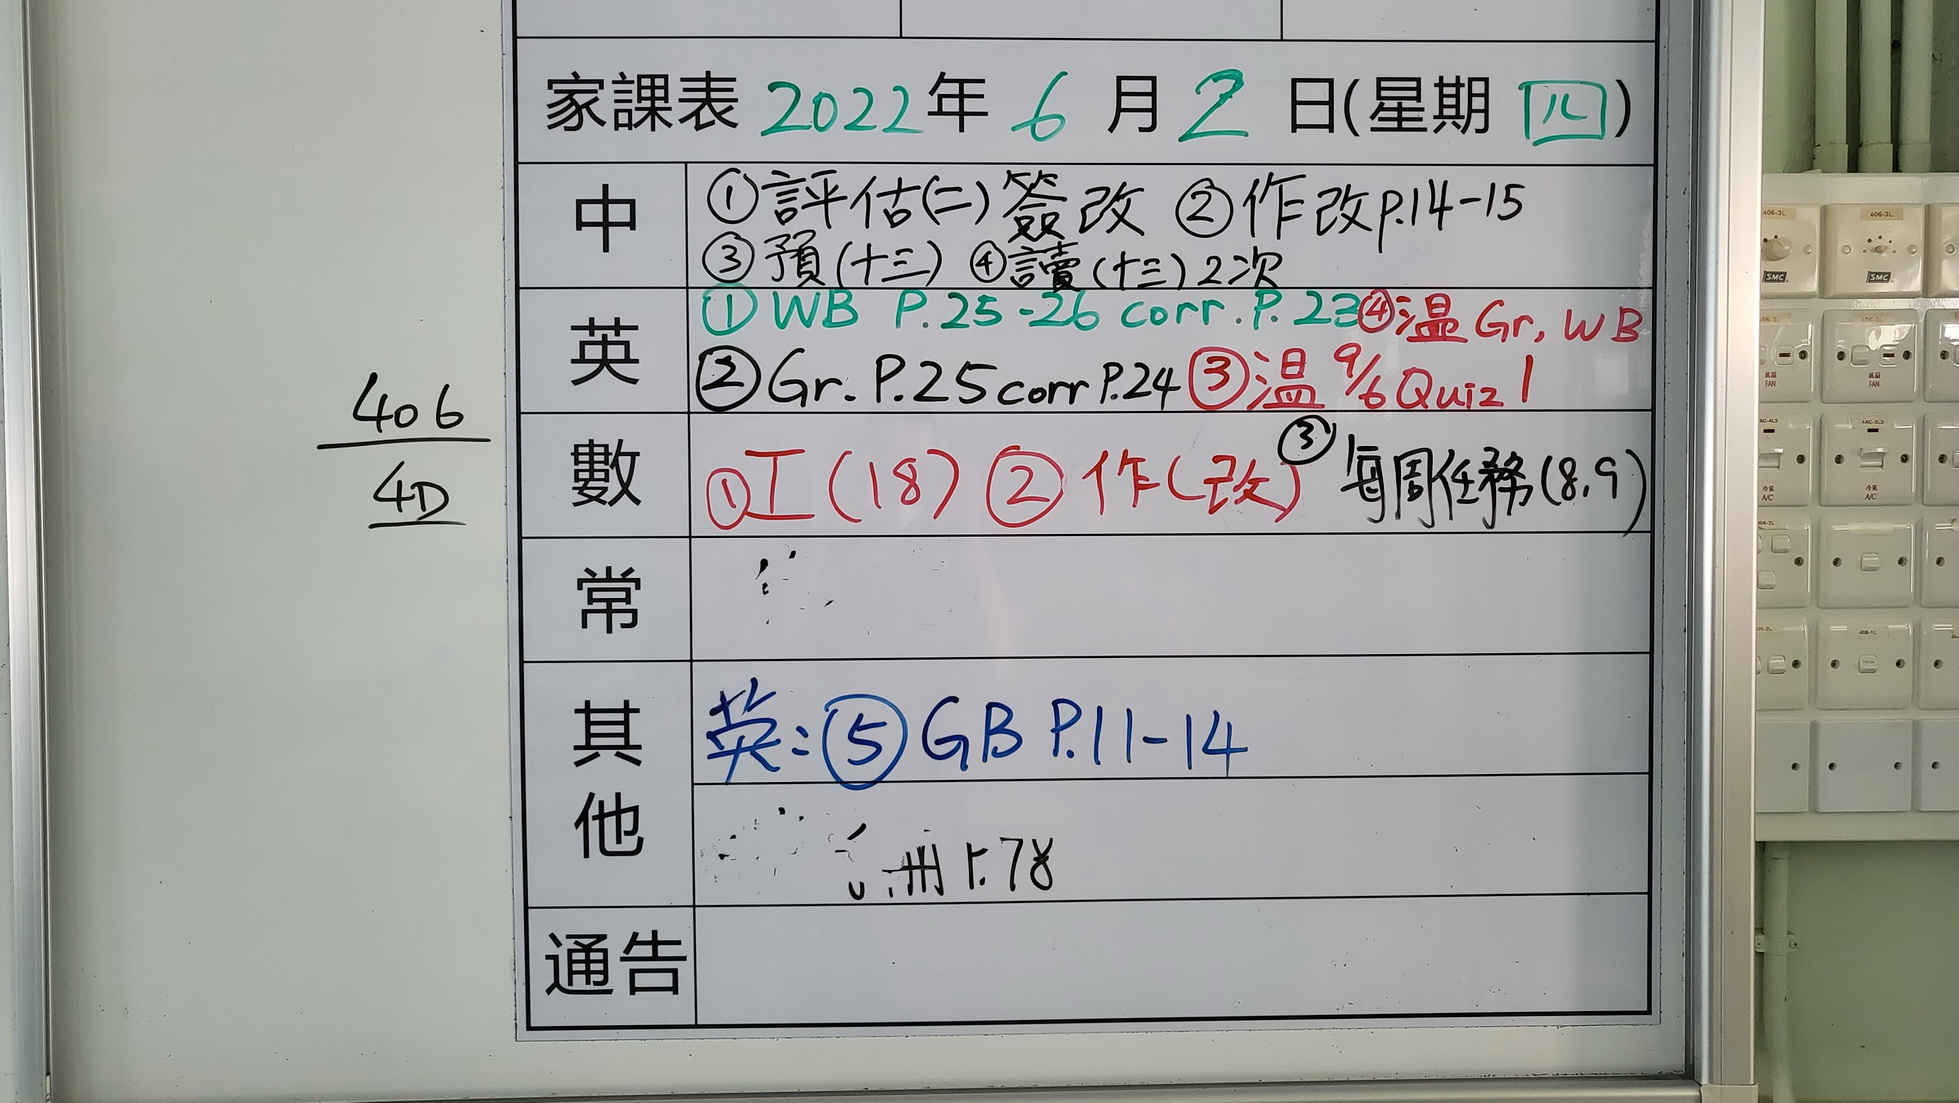 家課表 2022年 6月 2日(星期四)
中
①評估(二)簽改 ②作改p.14-15
③預(十三) ④讀(十三)2次
英
①WB P.25-26 corr. P. 23 ④温 Gr, WB
②Gr. P.25 corr P.24 ③温 9/6 Quiz 1
406
4D
數
①工(18) ②作(改) ③每周任務(8,9)
常
其他
英:⑤GB P.11-14
78
通告
SMC
SMC
406-3L
406-3L
風扇
FAN
風扇
FAN
冷氣
A/C
冷氣
A/C